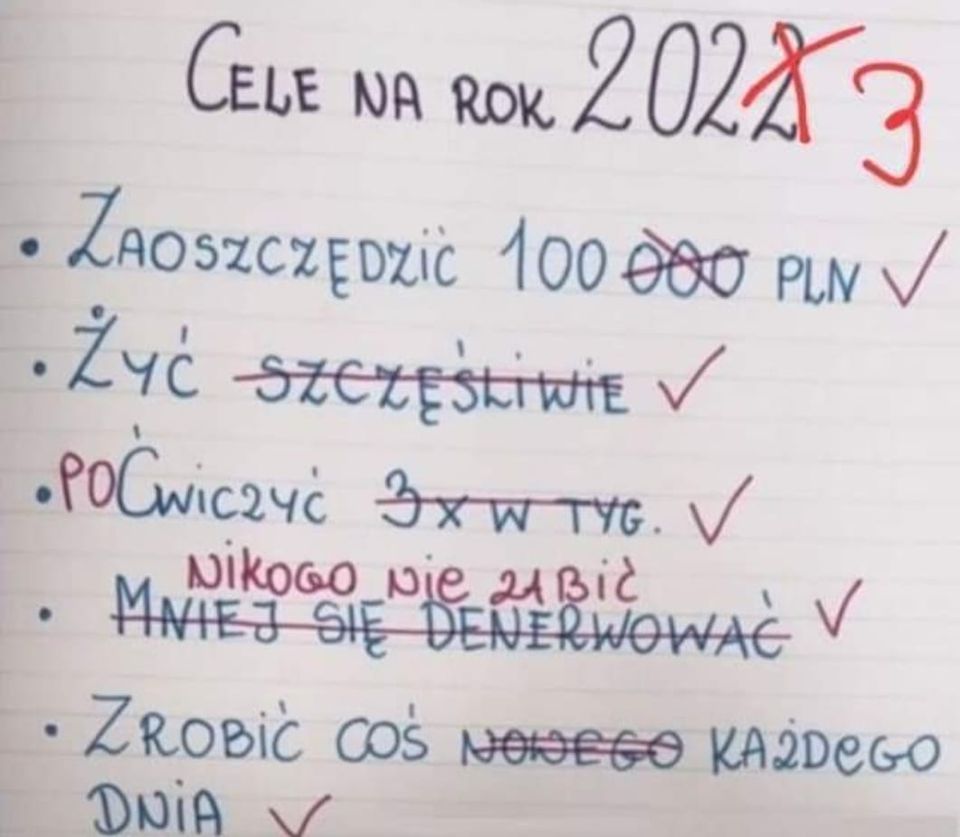 CELE NA ROK 2022 3
• ZAOSZCZĘDZIĆ 100 000 PLN ✓
• ŻYĆ SZCZĘŚLIWIE ✓
• POĆWICZYĆ 3 X W TYG. ✓
NIKOGO NIE ZABIĆ
• MNIEJ SIĘ DENERWOWAĆ ✓
• ZROBIĆ COŚ NOWEGO KAŻDEGO
DNIA ✓